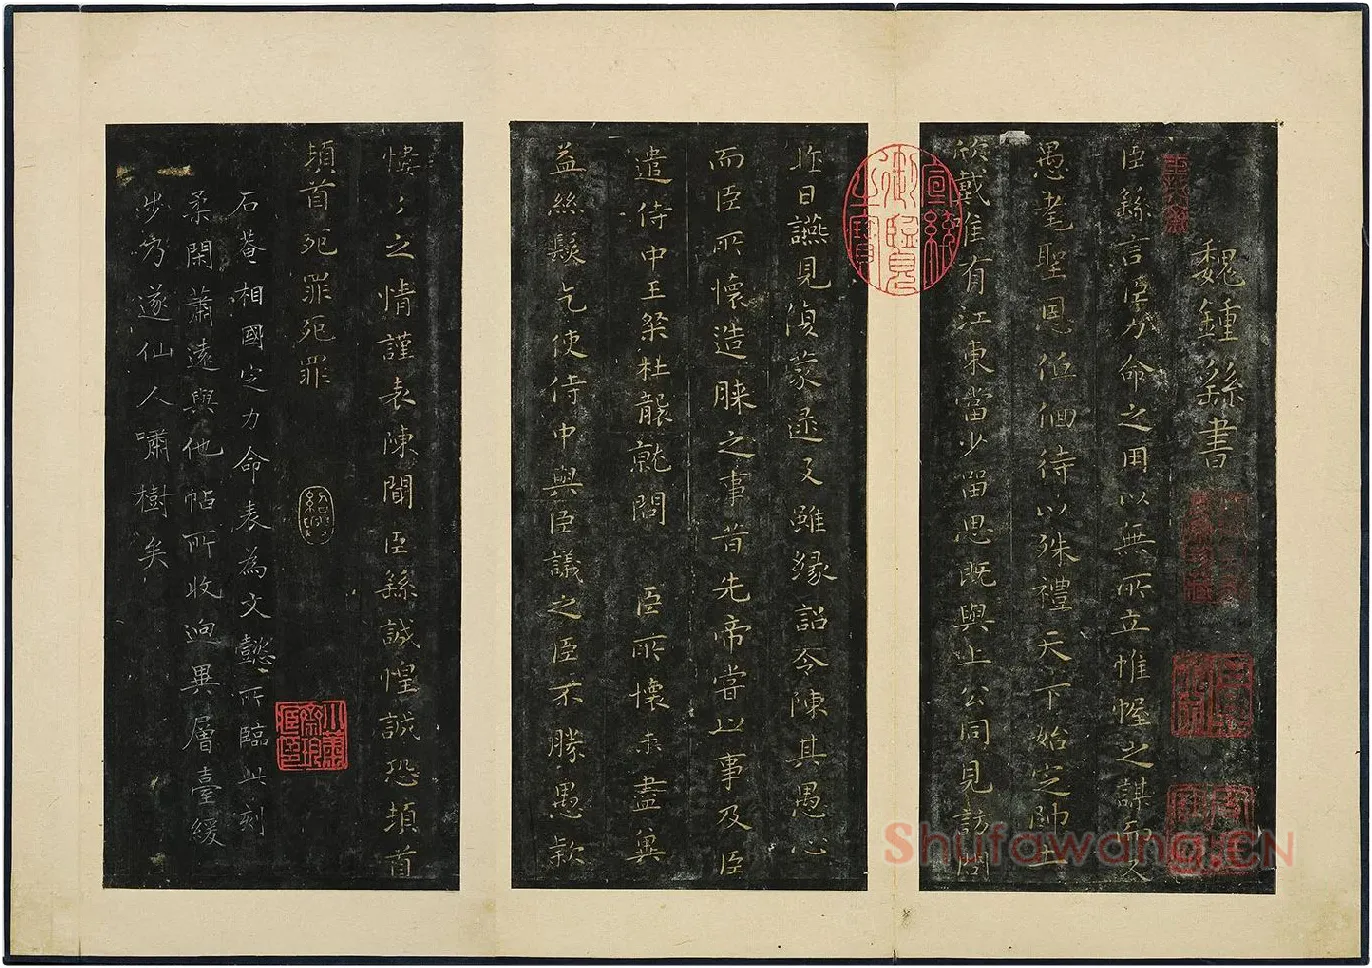 魏鍾繇書
臣繇言臣力命之用以無所立惟幄之謀而又
愚耄聖恩低佪待以殊禮天下始定帥土
欣戴唯有江東當少留思既與上公同見訪問
昨日讌見復蒙逮及雖緣詔令陳其愚心
而臣所懷造膝之事昔先帝嘗以事及臣
遣侍中王粲杜襲就問 臣所懷未盡奚
益絲髮乞使侍中與臣議之臣不勝愚款
慺々之情謹表陳聞臣繇誠惶誠恐頓首
頓首死罪死罪
紹興
石菴相國定力命表為文懿所臨此刻
柔閑蕭遠與他帖所收迥異層臺緩
步乃遂仙人嘯樹矣
宣統御覽之寶
Shufawang.CN